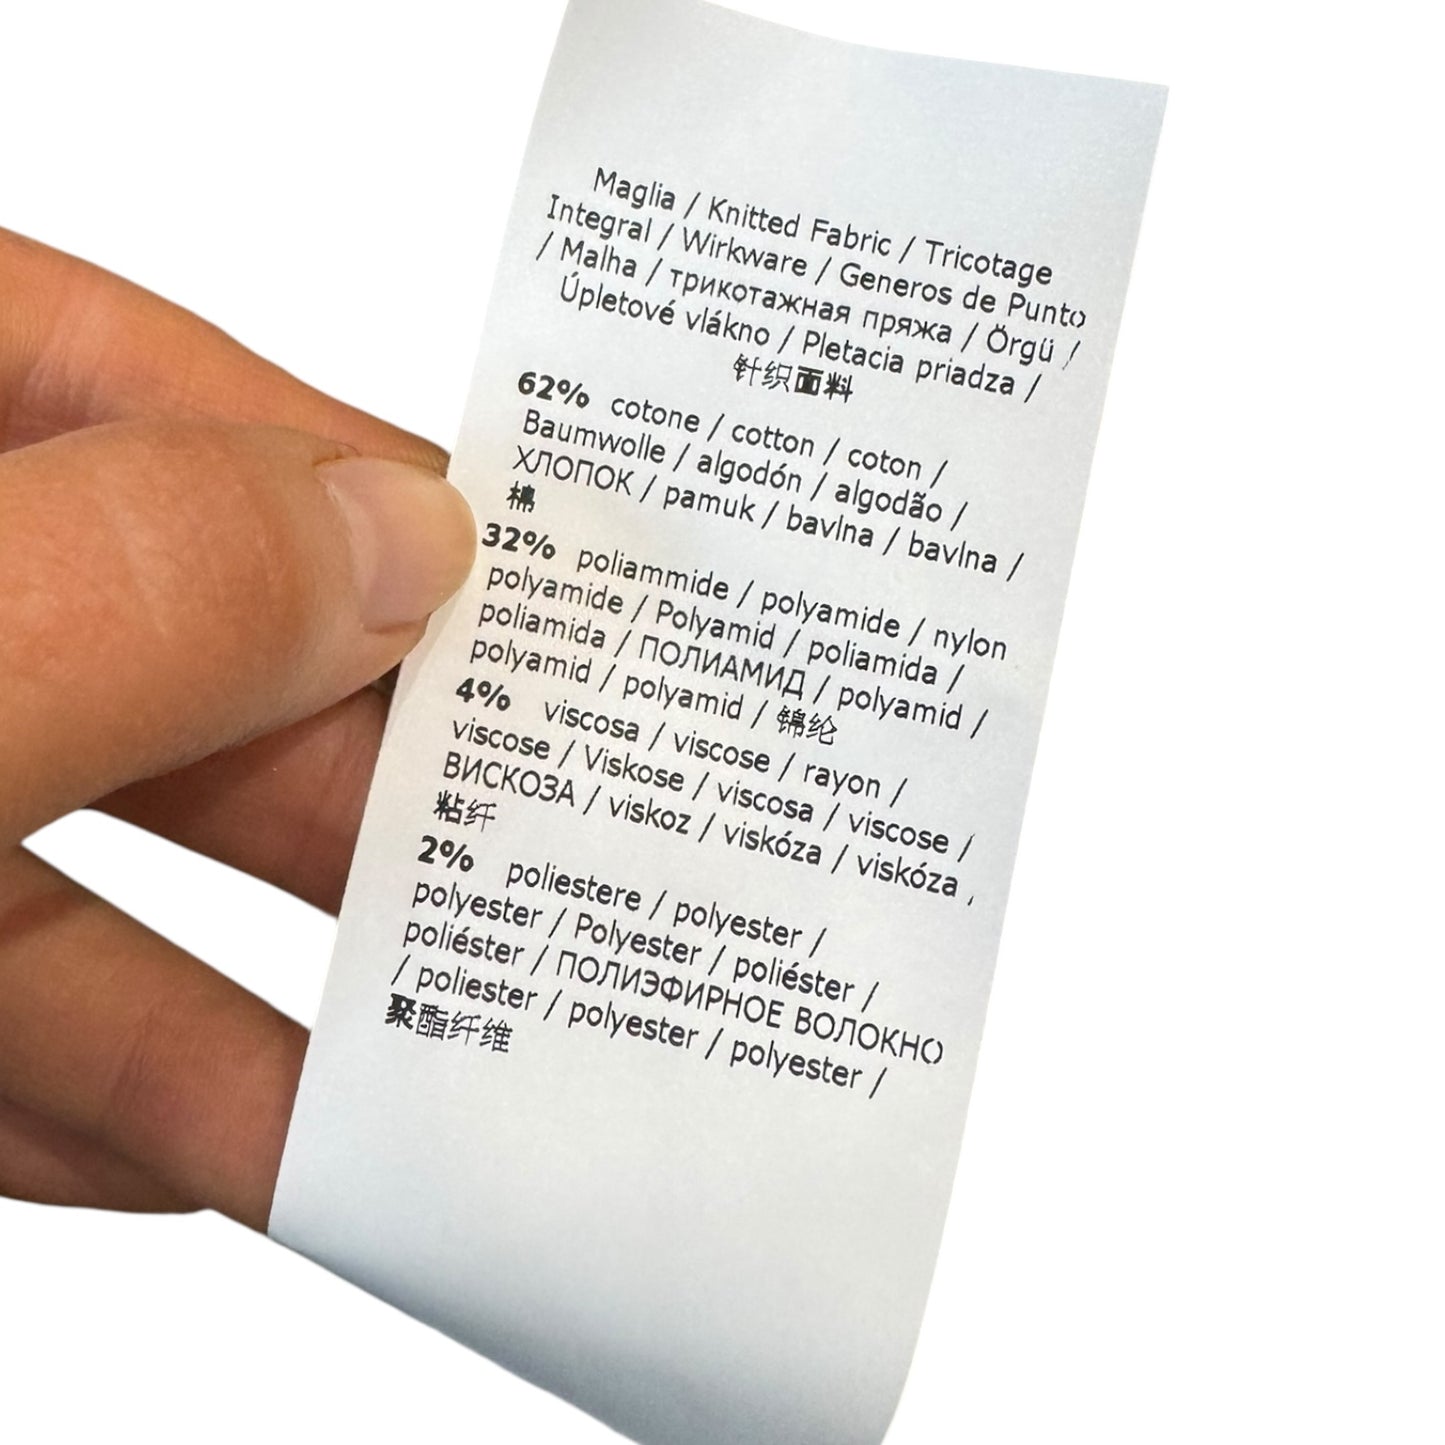 Maglia / Knitted Fabric / Tricotage
Integral / Wirkware / Generos de Punto
/ Malha / трикотажная пряжа / Örgü /
Úpletové vlákno / Pletacia priadza /
针织面料
62% cotone / cotton / coton /
Baumwolle / algodón / algodão /
ХЛОПОК / pamuk / bavlna / bavlna /
棉
32% poliammide / polyamide / nylon
polyamide / Polyamid / poliamida /
poliamida / ПОЛИАМИД / polyamid /
polyamid / polyamid / 锦纶
4% viscosa / viscose / rayon /
viscose / Viskose / viscosa / viscose /
ВИСКОЗА / viskoz / viskóza / viskóza /
粘纤
2% poliestere / polyester /
polyester / Polyester / poliéster /
poliéster / ПОЛИЭФИРНОЕ ВОЛОКНО
/ poliester / polyester / polyester /
聚酯纤维